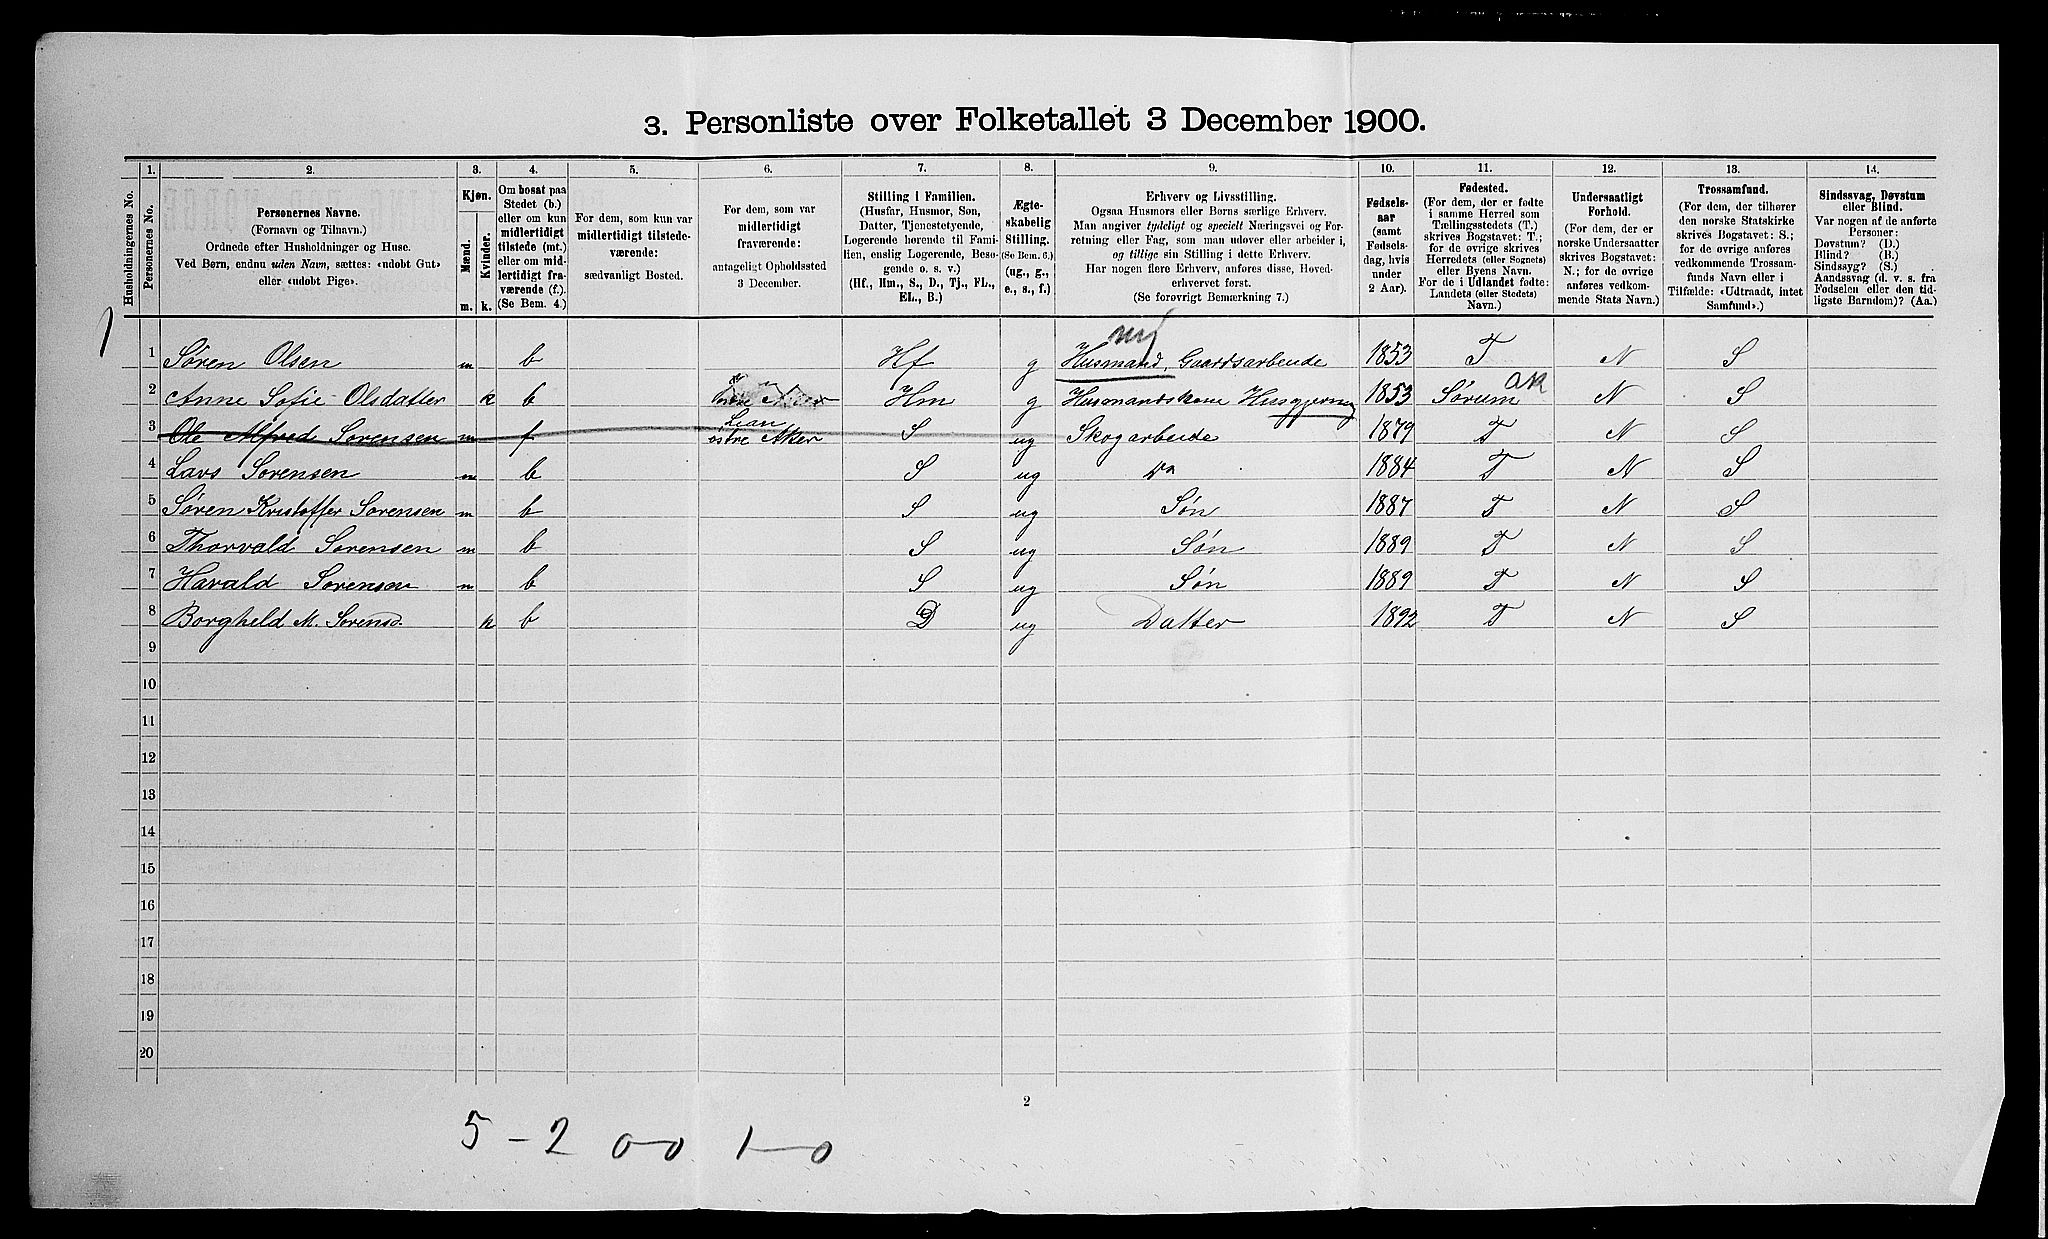 3. Personliste over Folketallet 3 December 1900.
Husholdningernes No.
1.
Personernes No.
2.
Personernes Navne.
(Fornavn og Tilnavn.)
Ordnede efter Husholdninger og Huse.
Ved Børn, endnu uden Navn, sættes: «udøbt Gut»
eller «udøbt Pige».
3.
Kjøn.
Mænd.
Kvinder.
m. k.
4.
Om bosat paa
Stedet (b.)
eller om kun
midlertidigt
tilstede (mt.)
eller om mid-
lertidigt fra-
værende (f.)
(Se Bem. 4.)
5.
For dem, som kun var
midlertidigt tilstede-
værende:
sædvanligt Bosted.
6.
For dem, som var
midlertidigt
fraværende:
antageligt Opholdssted
3 December.
7.
Stilling i Familien.
(Husfar, Husmor, Søn,
Datter, Tjenestetyende,
Logerende hørende til Fami-
lien, enslig Logerende, Besø-
gende o. s. v.)
(Hf., Hm., S., D., Tj., FL.,
EL., B.)
8.
Ægte-
skabelig
Stilling.
(Se Bem. 6.)
(ug., g.,
e., s., f.)
9.
Erhverv og Livsstilling.
Ogsaa Husmors eller Børns særlige Erhverv.
Man angiver tydeligt og specielt Næringsvei og For-
retning eller Fag, som man udøver eller arbeider i,
og tillige sin Stilling i dette Erhverv.
Har nogen flere Erhverv, anføres disse, Hoved-
erhvervet først.
(Se forøvrigt Bemærkning 7.)
10.
Fødsels-
aar
(samt
Fødsels-
dag, hvis
under
2 Aar).
11.
Fødested.
(For dem, der er fødte
i samme Herred som
Tællingsstedets (T.)
skrives Bogstavet: T.;
for de øvrige skrives
Herredets (eller Sognets)
eller Byens Navn.
For de i Udlandet fødte:
Landets (eller Stedets)
Navn.)
12.
Undersaatligt
Forhold.
(For dem, der er
norske Undersaatter
skrives Bogstavet:
N.; for de øvrige
anføres vedkom-
mende Stats Navn.)
13.
Trossamfund.
(For dem, der tilhører
den norske Statskirke
skrives Bogstavet: S.;
for de øvrige anføres
vedkommende Trossam-
funds Navn eller i
Tilfælde: «Udtraadt, intet
Samfund».)
14.
Sindssvag, Døvstum
eller Blind.
Var nogen af de anførte
Personer:
Døvstum? (D.)
Blind? (B.)
Sindssyg? (S.)
Aandssvag (d. v. s. fra
Fødselen eller den tid-
ligste Barndom)? (Aa.)
1
1 Søren Olsen m b Hf g Husmand, Gaardsarbeide 1853 T N S
2 Anne Sofie Olsdatter k b Hm g Husmandskone Husgjerning 1853 Sørum AK N S
3 Ole Alfred Sørensen m f Lian østre Aker S ug Skogarbeide 1879 T N S
4 Lars Sørensen m b S ug Do 1884 T N S
5 Søren Kristoffer Sørensen m b S ug Søn 1887 T N S
6 Thorvald Sørensen m b S ug Søn 1889 T N S
7 Harald Sørensen m b S ug Søn 1889 T N S
8 Borgheld M. Sørensd. k b D ug Datter 1892 T N S
9
10
11
12
13
14
15
16
17
18
19
20
2
5 - 2 0-0 1-0